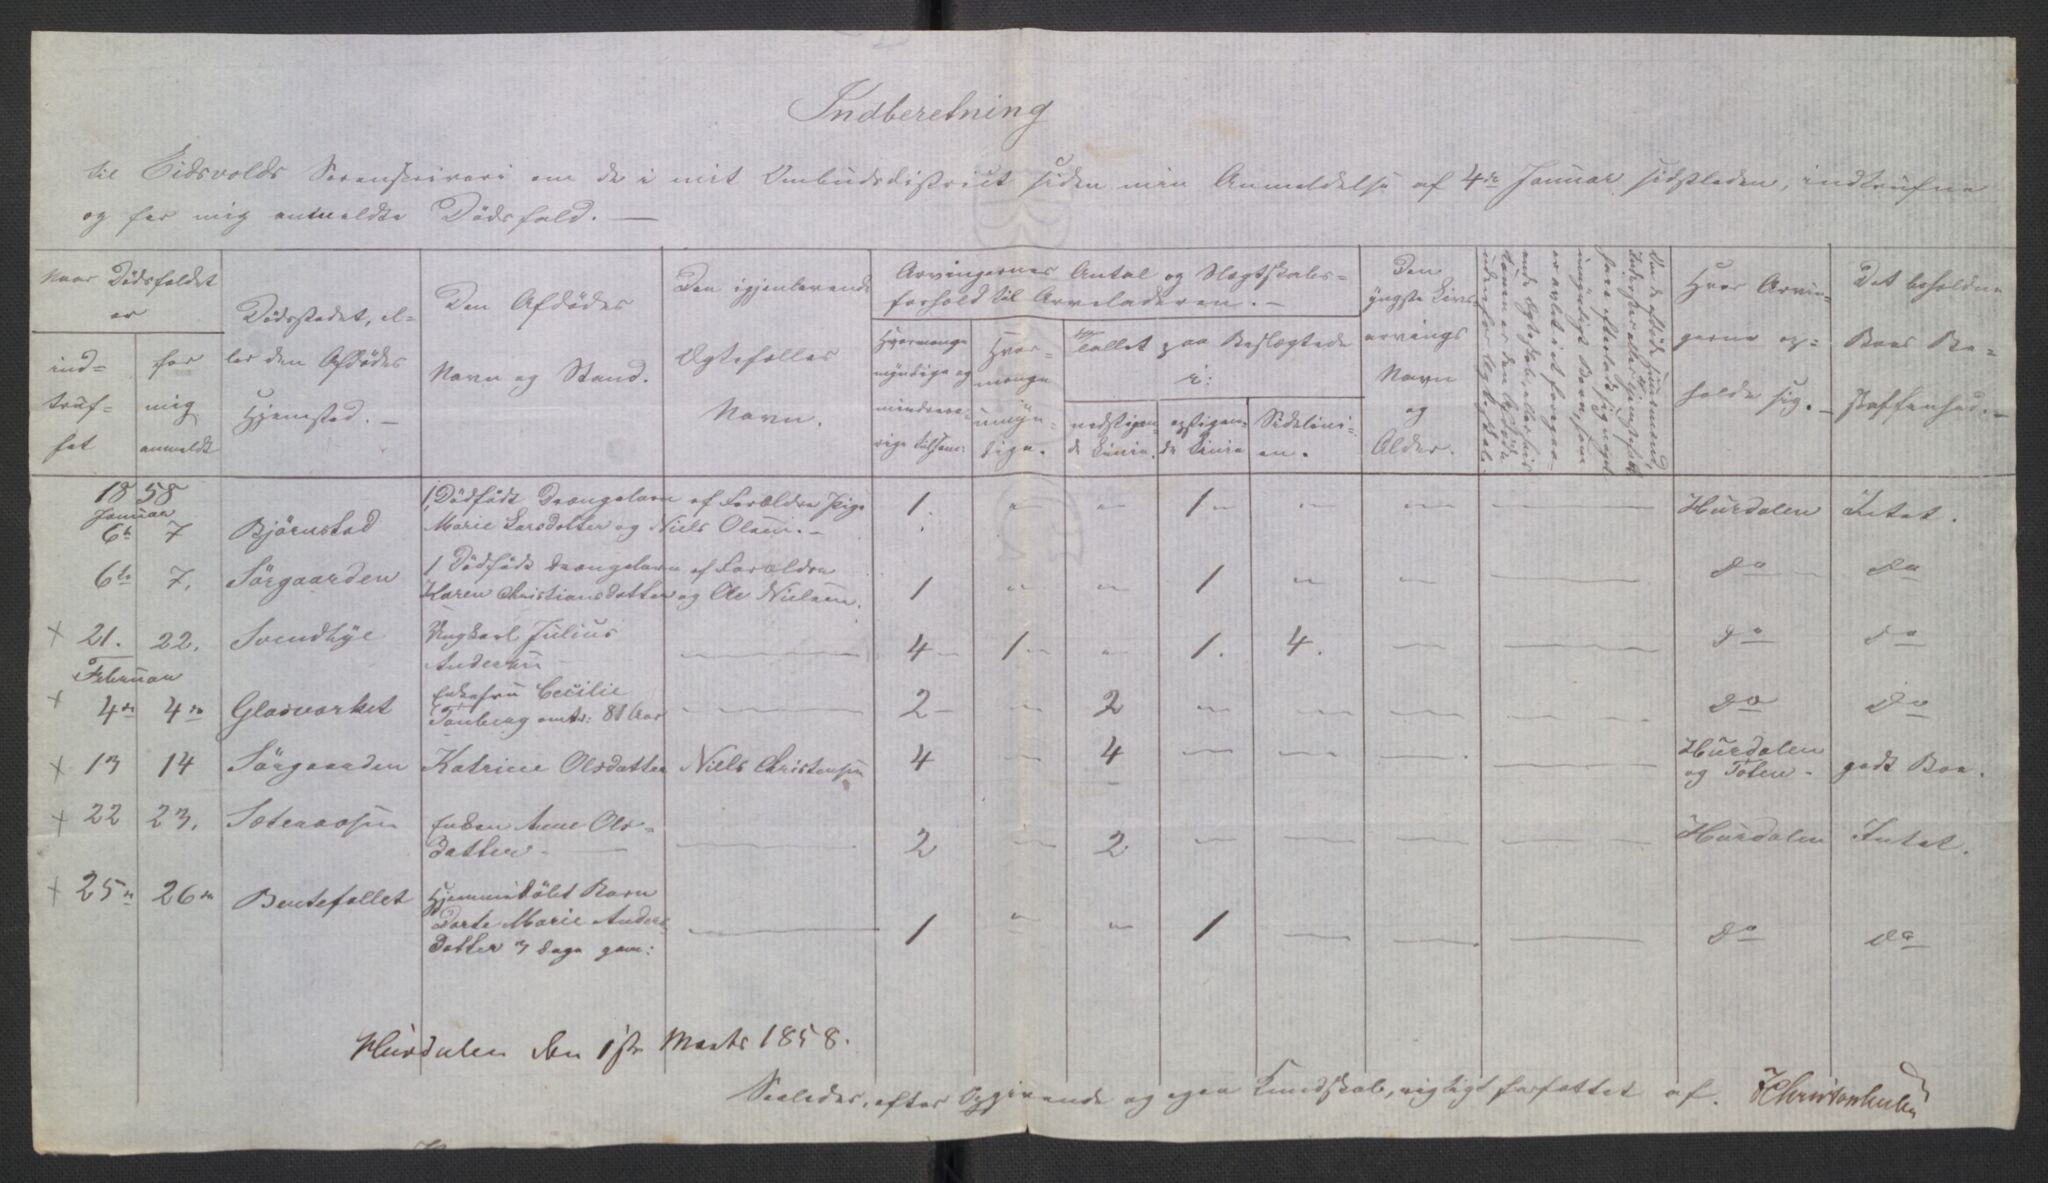 Indberetning
til Eidsvolds Sorenskriveri om de i mit Ombudsdistrict siden min Anmeldelse af 4de Januar sidstleden, indtrufne
og for mig anmeldte Dødsfald. —
Naar Dødsfaldet
er
ind-
truf-
fet
for
mig
anmeldt
Dødsstedet, el-
ler den Afdødes
Hjemsted. —
Den Afdødes
Navn og Stand.
Den igjenlevende
Ægtefælles
Navn.
Arvingernes Antal og Slægtskabs-
forhold til Arveladeren. —
Hvormange
myndige og
mindreaa-
rige tilsam:
Hvor-
mange
umyn-
dige.
Tallet paa Beslægtede
i:
nedstigen-
de Linie.
opstigen-
de Linie
Sidelini-
en.
Den
yngste Livs-
arvings
Navn
og
Alder.
Hvor Arvin-
gerne op-
holde sig. —
Det beholdne
Boes Be-
skaffenhed. —
1858
Januar
6te 7 Bjørnstad 1 Dødfødt Drængebarn af Forældre Pige
Marie Larsdatter og Niels Olsen. — 1. " " 1 " " " — Hurdalen Intet.
6te 7. Sørgaarden 1 Dødfødt Drængebarn af Forældre
Karen Christiansdatter og Ole Nielsen. 1 " " 1 " " — do do
+ 21. 22. Svendbye Ungkarl Julius
Andersen — 4 1 " 1. 4. — — do do
Februar
+ 4de 4de Glasværket Enkefru Cecilie
Tanberg omtr: 81 Aar — 2 " 2 " " — — do do
+ 13 14 Sørgaarden Katrine Olsdatter Niels Christensen 4 " 4 " " — — Hurdalen
og Toten — godt Boe.
+ 22 23. Sæteraasen Enken Anne Ols-
datter — — 2 " 2 " — — — Hurdalen Intet.
+ 25de 26de Bentefallet Hjemmedøbt Barn
Dorte Marie Anders
datter 3 Dage gam: — 1 " " 1 — — — do do
Hurdalen den 1ste Marts 1858.
Saaledes, efter Opgivende og egen Kundskab, rigtigt forfattet af.